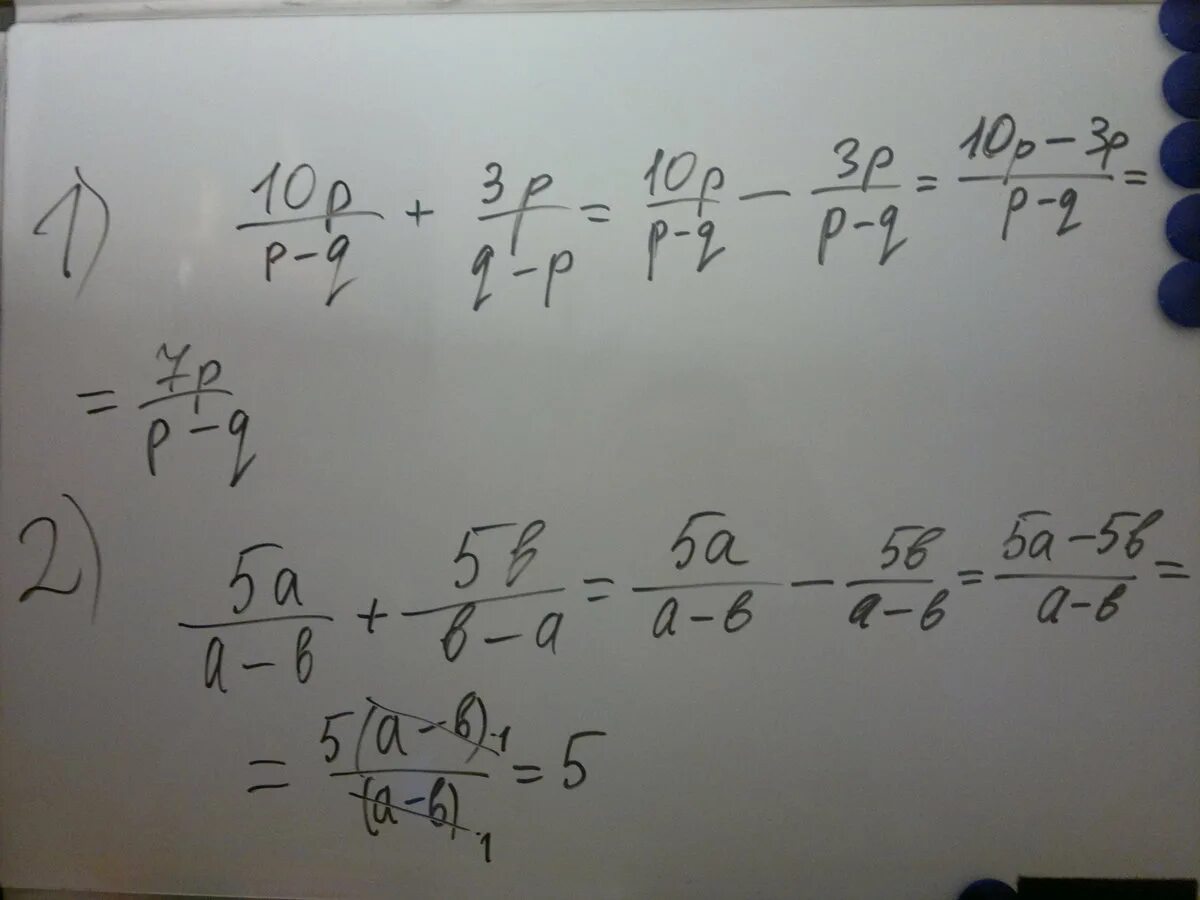 1) 10p/(p-q) + 3p/(q-p) = 10p/(p-q) - 3p/(p-q) = (10p-3p)/(p-q) =
= 7p/(p-q)
2) 5a/(a-в) + 5в/(в-a) = 5a/(a-в) - 5в/(a-в) = (5a-5в)/(a-в) =
= 5(a-в) 1/(a-в) 1 = 5